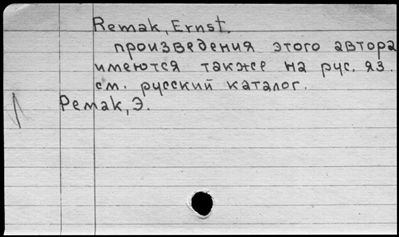 Remak, Ernst.
произведения этого автора
имеются также на рус. яз.
см. русский каталог.
Ремак, Э.